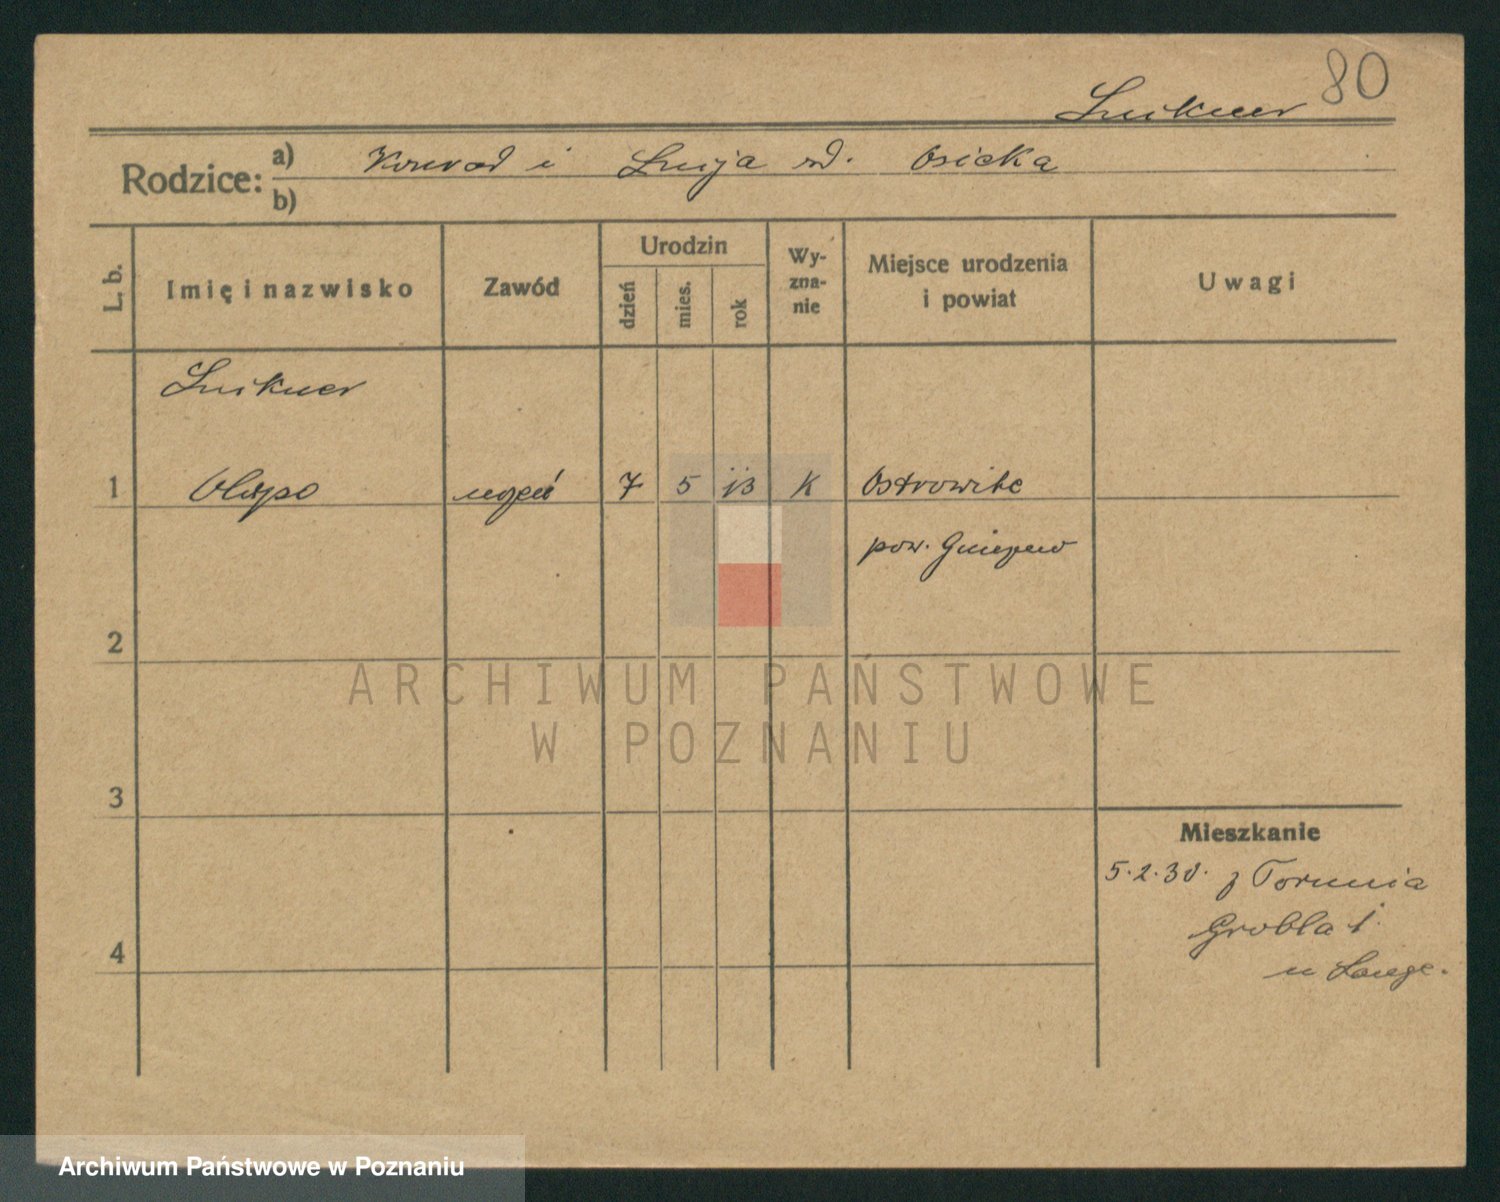 80
Luikner
Rodzice: a) Konrad i Luija rd. Osicka
b)
L. b.
Imię i nazwisko
Zawód
Urodzin
dzień
mies.
rok
Wy-
zna-
nie
Miejsce urodzenia
i powiat
Uwagi
Luikner
1 uczeń 7 5 13 K Ostrowite
pow. Gniezno
2
3
4
Mieszkanie
5.2.30. z Torunia
Grobla 1.
u Lange.
ARCHIWUM PAŃSTWOWE
W POZNANIU
Archiwum Państwowe w Poznaniu